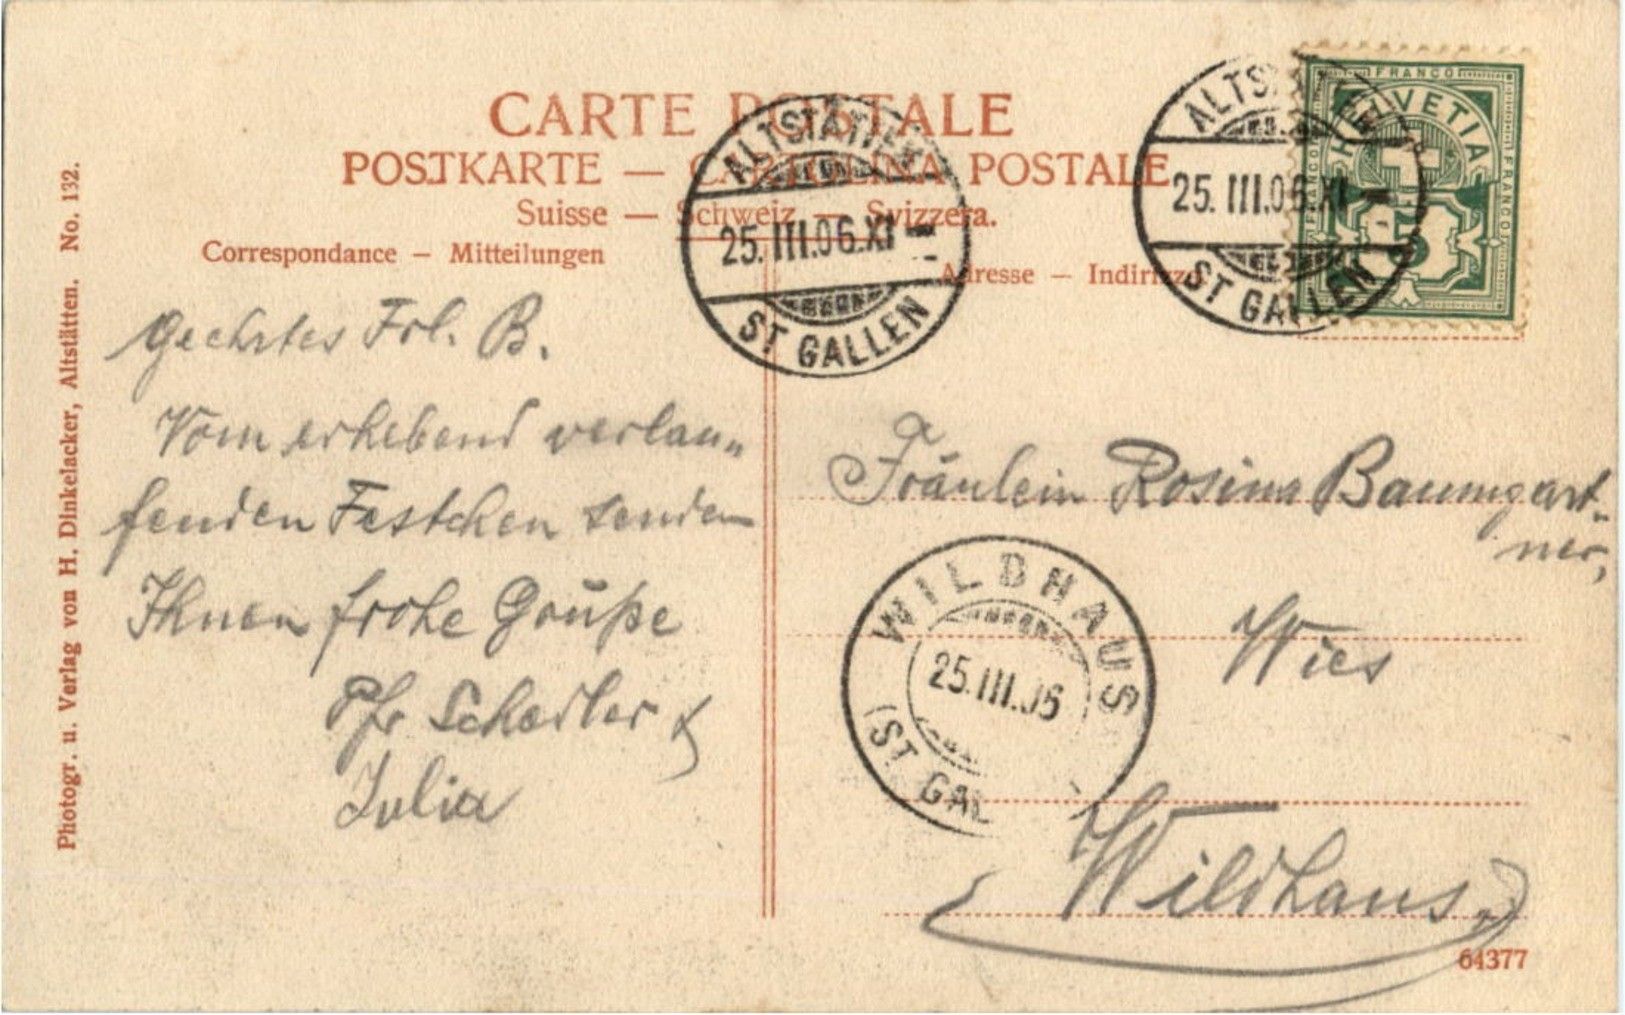 CARTE POSTALE
POSTKARTE — CARTOLINA POSTALE
Suisse — Schweiz — Svizzera.
Correspondance — Mitteilungen
Adresse — Indirizzo
ALTSTÄTTEN
25. III. 06. XI
ST GALLEN
ALTSTÄTTEN
25. III. 06. XI
ST GALLEN
FRANCO
HELVETIA
FRANCO
FRANCO
5
Geehrtes Frl. B.
Vom erhebend verlau„
fenden Festchen senden
Ihnen frohe Grüße
Pfr Schedler &
Julia
Fräulein Rosina Baumgart-
ner,
Wies
Wildhaus
WILDHAUS
25. III. 06
(ST GAL
64377
Photogr. u. Verlag von H. Dinkelacker, Altstätten. No. 132.